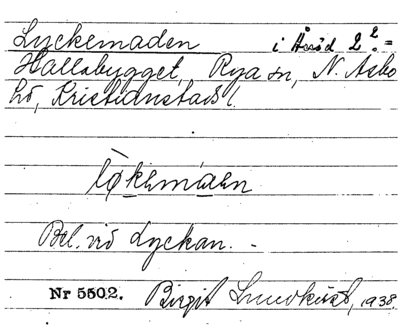 Lyckemaden i Åsröd 2²=
Hallabygget, Rya sn, N. Åsbo
hd, Kristianstads l.
lø̀kemáden
Bel. vid Lyckan. -
Nr 5502. Birgit Lundkvist, 1938.